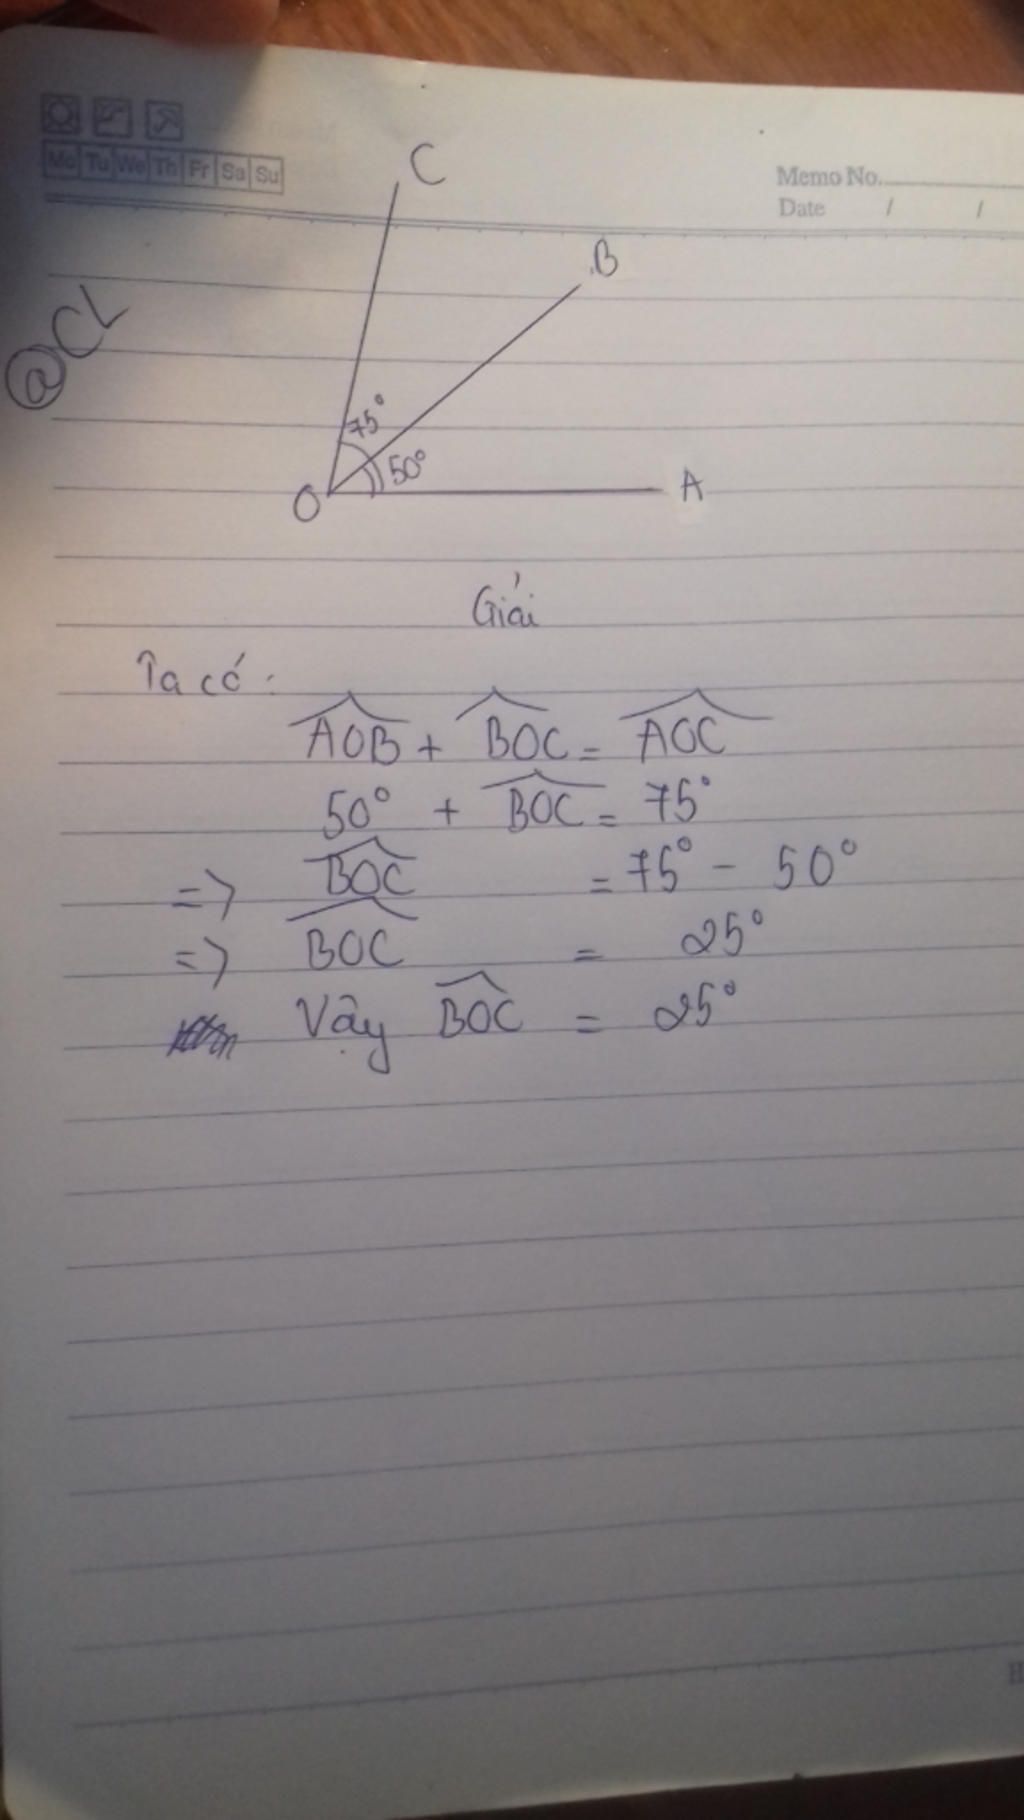 Mo Tu We Th Fr Sa Su
Memo No.
Date / /
C
B
@CL
75°
50°
O
A
Giải
Ta có:
AOB + BOC = AOC
50° + BOC = 75°
=> BOC = 75° - 50°
=> BOC = 25°
Vậy BOC = 25°